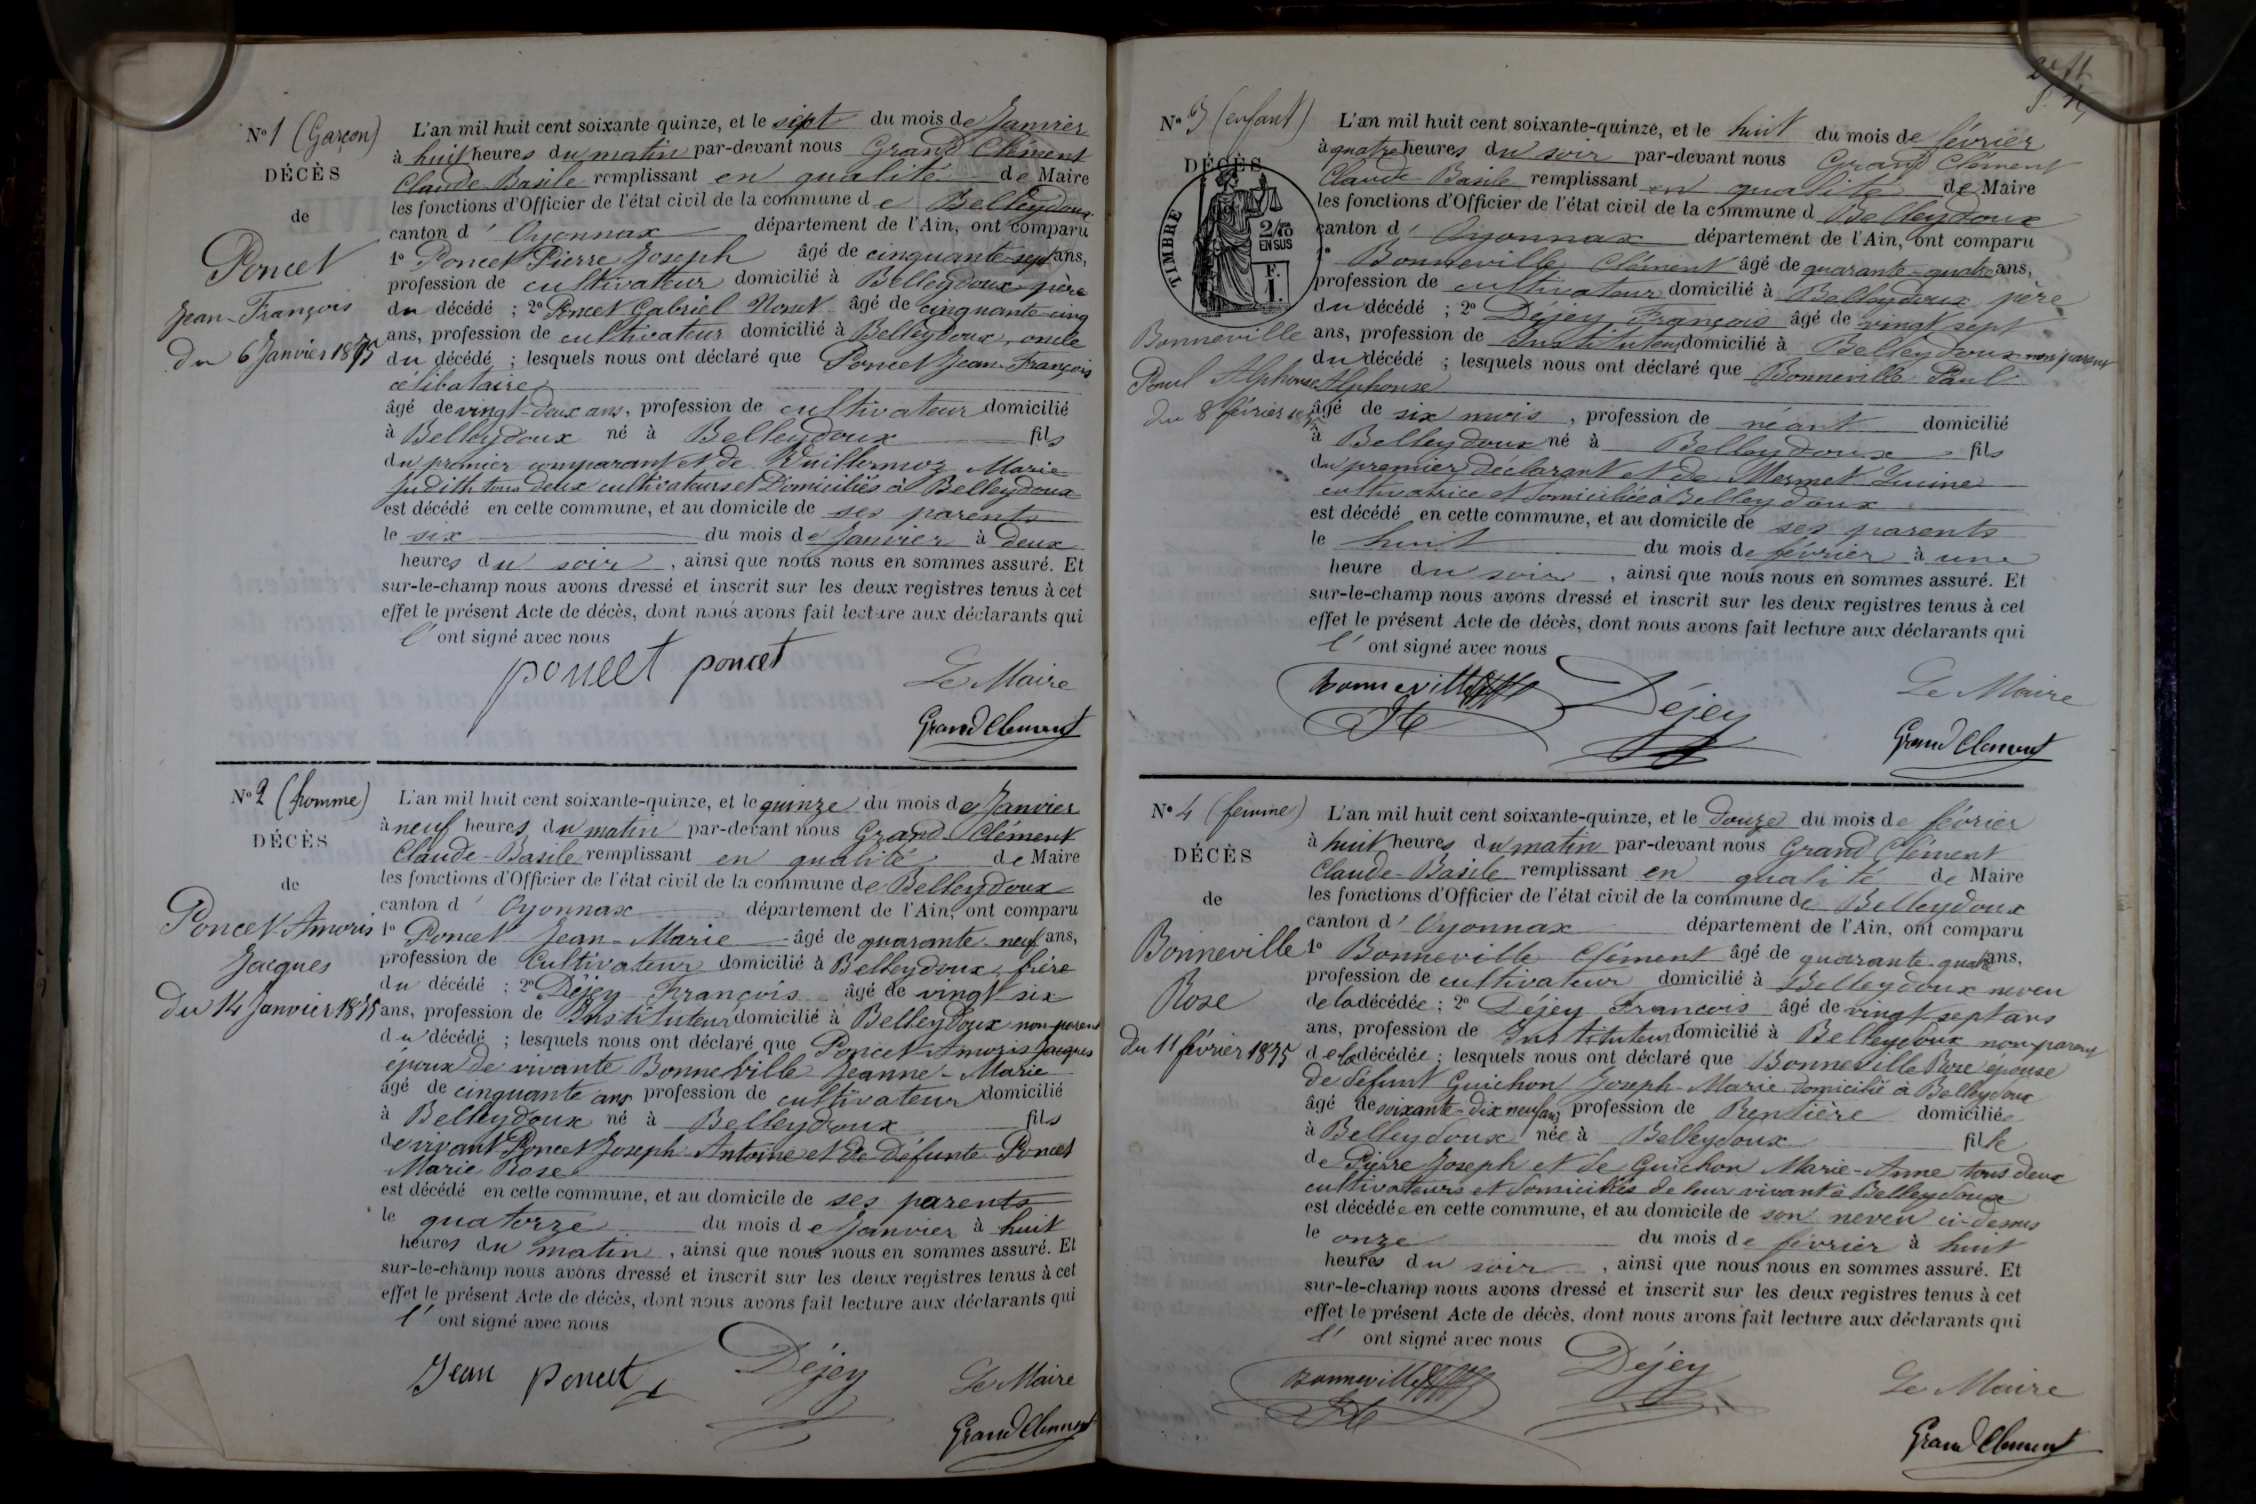 N° 1 (Garçon)
DÉCÈS
de
Poncet
Jean-François
du 6 Janvier 1875
L'an mil huit cent soixante-quinze, et le sept du mois de Janvier
à huit heures du matin par-devant nous Grand Clément
Claude Basile remplissant en qualité de Maire
les fonctions d'Officier de l'état civil de la commune de Belleydoux
canton d' Oyonnax département de l'Ain, ont comparu
1° Poncet Pierre Joseph âgé de cinquante-sept ans,
profession de cultivateur domicilié à Belleydoux père
du décédé ; 2° Poncet Gabriel âgé de cinquante-cinq
ans, profession de cultivateur domicilié à Belleydoux, oncle
du décédé ; lesquels nous ont déclaré que Poncet Jean-François
célibataire
âgé de vingt-deux ans, profession de cultivateur domicilié
à Belleydoux né à Belleydoux fils
du premier comparant et de Vuillermoz Marie
Judith tous deux cultivateurs et domiciliés à Belleydoux
est décédé en cette commune, et au domicile de ses parents
le six du mois de Janvier à deux
heures du soir, ainsi que nous nous en sommes assuré. Et
sur-le-champ nous avons dressé et inscrit sur les deux registres tenus à cet
effet le présent Acte de décès, dont nous avons fait lecture aux déclarants qui
l'ont signé avec nous
poncet poncet
Le Maire
Grand Clement
N° 2 (homme)
DÉCÈS
de
Poncet Amoris
Jacques
Du 14 Janvier 1875
L'an mil huit cent soixante-quinze, et le quinze du mois de Janvier
à neuf heures du matin par-devant nous Grand Clément
Claude-Basile remplissant en qualité de Maire
les fonctions d'Officier de l'état civil de la commune de Belleydoux
canton d' Oyonnax département de l'Ain, ont comparu
1° Poncet Jean-Marie âgé de quarante-neuf ans,
profession de Cultivateur domicilié à Belleydoux, frère
du décédé ; 2° Déjey François âgé de vingt six
ans, profession de Instituteur domicilié à Belleydoux non parent
du décédé ; lesquels nous ont déclaré que Poncet Amoris Jacques
époux de vivante Bonneville Jeanne-Marie
âgé de cinquante ans profession de cultivateur domicilié
à Belleydoux né à Belleydoux fils
de vivant Poncet Joseph-Antoine et de défunte Poncet
Marie Rose
est décédé en cette commune, et au domicile de ses parents
le quatorze du mois de Janvier à huit
heures du matin, ainsi que nous nous en sommes assuré. Et
sur-le-champ nous avons dressé et inscrit sur les deux registres tenus à cet
effet le présent Acte de décès, dont nous avons fait lecture aux déclarants qui
l'ont signé avec nous
Jean poncet Déjey
Le Maire
Grand Clement
N° 3 (enfant)
DÉCÈS
TIMBRE
2/10
EN SUS
F.
I.
Bonneville
Paul Alphonse
du 8 février 1875
L'an mil huit cent soixante-quinze, et le huit du mois de février
à quatre heures du soir par-devant nous Grand Clément
Claude Basile remplissant en qualité de Maire
les fonctions d'Officier de l'état civil de la commune d Belleydoux
canton d' Oyonnax département de l'Ain, ont comparu
1° Bonneville Clément âgé de quarante-quatre ans,
profession de cultivateur domicilié à Belleydoux père
du décédé ; 2° Déjey François âgé de vingt sept
ans, profession de Instituteur domicilié à Belleydoux non parent
du décédé ; lesquels nous ont déclaré que Bonneville Paul
Alphonse
âgé de six mois, profession de néant domicilié
à Belleydoux né à Belleydoux fils
du premier déclarant et de Mermet
cultivatrice et domiciliée à Belleydoux
est décédé en cette commune, et au domicile de ses parents
le huit du mois de février à une
heure du soir, ainsi que nous nous en sommes assuré. Et
sur-le-champ nous avons dressé et inscrit sur les deux registres tenus à cet
effet le présent Acte de décès, dont nous avons fait lecture aux déclarants qui
l'ont signé avec nous
Bonneville Déjey
Le Maire
Grand Clement
N° 4 (femme)
DÉCÈS
de
Bonneville
Rose
du 11 février 1875
L'an mil huit cent soixante-quinze, et le douze du mois de février
à huit heures du matin par-devant nous Grand Clément
Claude-Basile remplissant en qualité de Maire
les fonctions d'Officier de l'état civil de la commune de Belleydoux
canton d' Oyonnax département de l'Ain, ont comparu
1° Bonneville Clément âgé de quarante-quatre ans,
profession de cultivateur domicilié à Belleydoux neveu
de la décédée ; 2° Déjey François âgé de vingt sept ans
ans, profession de Instituteur domicilié à Belleydoux non parent
de la décédée ; lesquels nous ont déclaré que Bonneville Rose épouse
de défunt Guichon Joseph-Marie domicilié à Belleydoux
âgé de soixante-dix neuf ans profession de Rentière domiciliée
à Belleydoux née à Belleydoux fille
de Pierre Joseph et de Guichon Marie-Anne tous deux
cultivateurs et domiciliés de leur vivant à Belleydoux
est décédée en cette commune, et au domicile de son neveu ci-dessus
le onze du mois de février à huit
heures du soir, ainsi que nous nous en sommes assuré. Et
sur-le-champ nous avons dressé et inscrit sur les deux registres tenus à cet
effet le présent Acte de décès, dont nous avons fait lecture aux déclarants qui
l'ont signé avec nous
Bonneville Déjey
Le Maire
Grand Clement